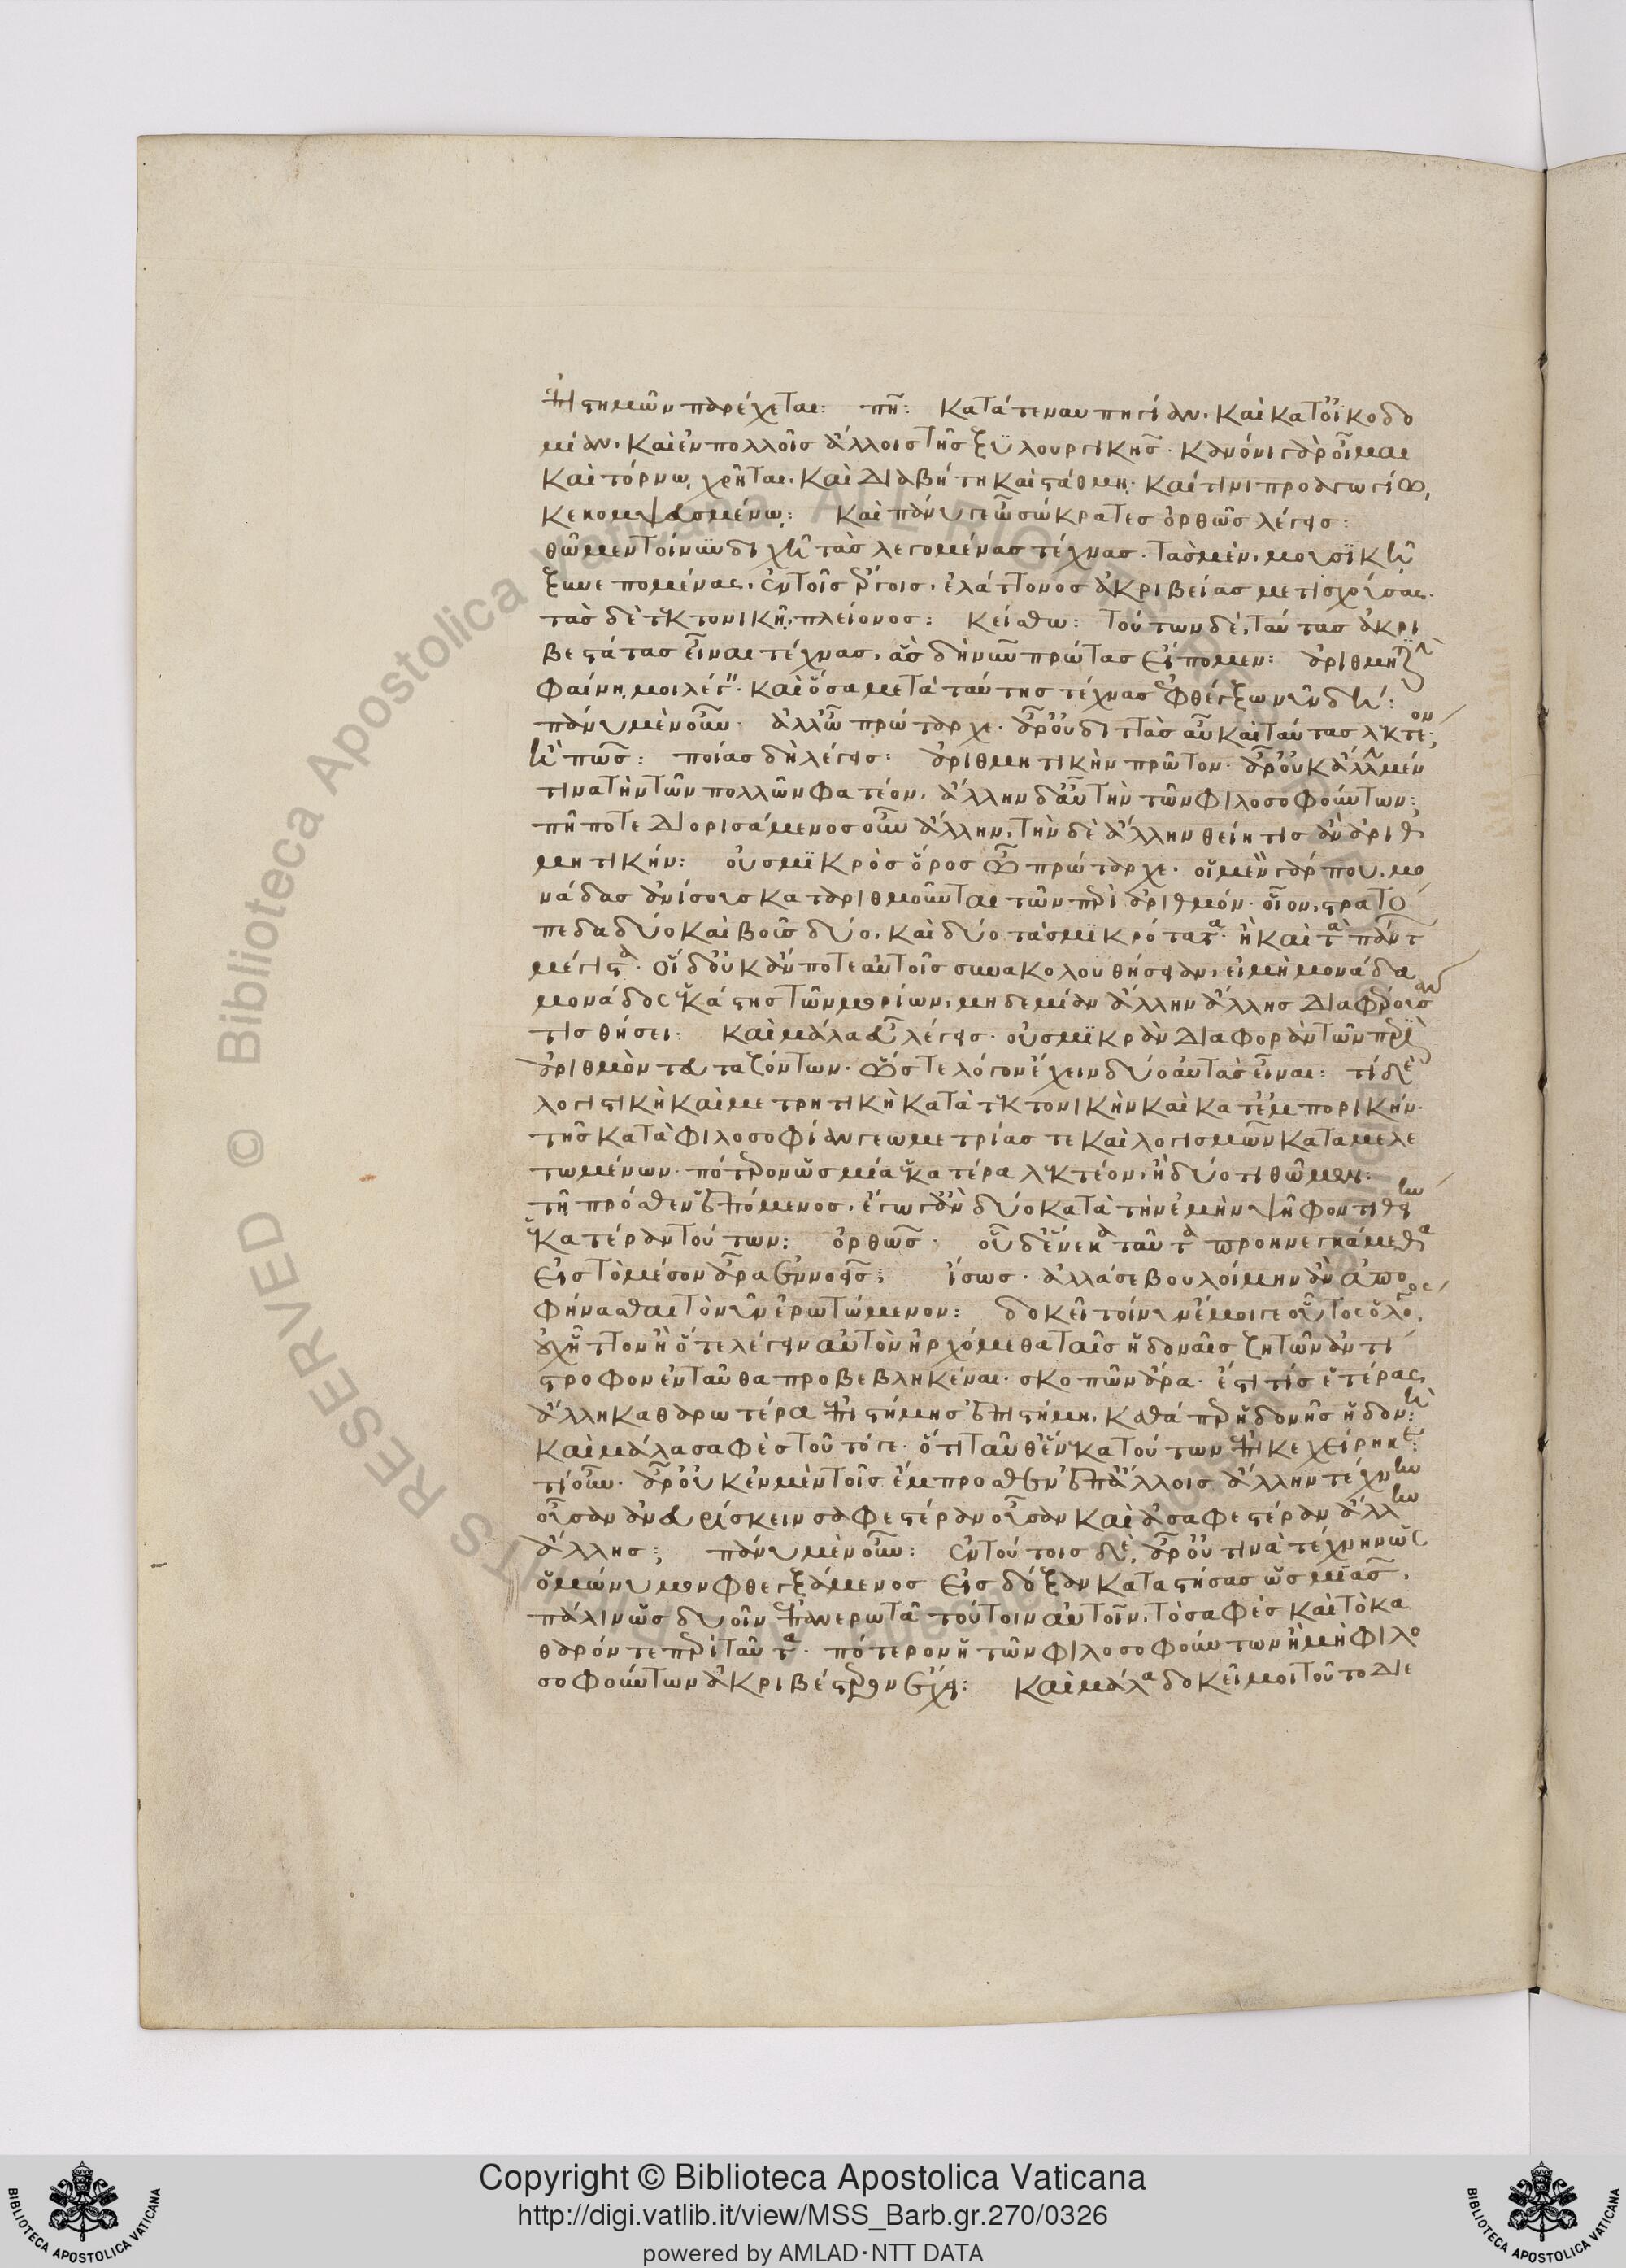 ἐπιστημῶν παρέχεται: πῆ: κατά τε ναυπηγίαν. καὶ κατ' οἰκοδο
μίαν. καὶ ἐν πολλοῖς ἄλλοις τῆς ξυλουργικῆς. κανόνι γὰρ οἶμαι
καὶ τόρνῳ χρῆται. καὶ διαβήτῃ καὶ στάθμῃ. καί τινι προαγωγίῳ
κεκομψευσμένῳ: καὶ πάνυ γε ὦ σώκρατες ὀρθῶς λέγεις:
θῶμεν τοίνυν διχῆ τὰς λεγομένας τέχνας. τὰς μὲν μουσικῆ
ξυνεπομένας. ἐν τοῖς ἔργοις. ἐλάττονος ἀκριβείας μετισχούσας.
τὰς δὲ τεκτονικῆ. πλείονος: κείσθω: τούτων δὲ, ταύτας ἀκρι
βεστάτας εἶναι τέχνας, ἃς δὴ νῦν πρώτας εἴπομεν: ἀριθμητικὴν
φαίνῃ μοι λέγειν. καὶ ὅσα μετὰ ταύτης τέχνας ἐφθέγξω νῦν δή:
πάνυ μὲν οὖν. ἀλλ' ὦ πρώταρχε. ἆρ' οὐ διττὰς αὖ καὶ ταύτας λεκτέον;
ἢ πῶς: ποίας δὴ λέγεις: ἀριθμητικὴν πρῶτον. ἆρ' οὐκ ἄλλην μέν
τινα τὴν τῶν πολλῶν φατέον, ἄλλην δ' αὖ τὴν τῶν φιλοσοφούντων:
πῆ ποτε διορισάμενος οὖν ἄλλην, τὴν δὲ ἄλλην θείη τις ἂν ἀριθ
μητικήν: οὐ σμικρὸς ὅρος ὦ πρώταρχε. οἱ μὲν γάρ που μο
νάδας ἀνίσους καταριθμοῦνται τῶν περὶ ἀριθμόν. οἷον, στρατό
πεδα δύο καὶ βοῦς δύο. καὶ δύο τὰ σμικρότατα. ἢ καὶ τὰ πάντ
μέγιστα. οἱ δ' οὐκ ἄν ποτε αὐτοῖς συνακολουθήσειαν, εἰ μὴ μονάδα
μονάδος ἑκάστης τῶν μυρίων, μηδεμίαν ἄλλην ἄλλης διαφέρουσαν
τις θήσει: καὶ μάλα εὖ λέγεις. οὐ σμικρὰν διαφορὰν τῶν περὶ
ἀριθμὸν τευταζόντων. ὥστε λόγον ἔχειν δύο αὐτὰς εἶναι: τί δὲ
λογιστικὴ καὶ μετρητικὴ κατὰ τεκτονικὴν καὶ κατ' ἐμπορικήν.
τῆς κατὰ φιλοσοφίαν γεωμετρίας τε καὶ λογισμῶν καταμελε
τωμένων. πότερον ὡς μία ἑκατέρα λεκτέον, ἢ δύο τιθῶμεν:
τῇ πρόσθεν ἑπόμενος. ἔγωγ' ἂν δύο κατὰ τὴν ἐμὴν ψῆφον τιθείην
ἑκατέραν τούτων: ὀρθῶς. οὗ δ' ἕνεκα ταῦτα προηνεγκάμεθα
εἰς τὸ μέσον ἆρα ἐννοεῖς: ἴσως. ἀλλὰ σὲ βουλοίμην ἂν ἀπο
φήνασθαι τὸ νῦν ἐρωτώμενον: δοκεῖ τοίνυν ἔμοιγε οὗτος ὁ λόγος
οὐχ ἧττον ἢ ὅτε λέγειν αὐτὸν ἠρχόμεθα ταῖς ἡδοναῖς ζητῶν ἀντί
στροφον ἐνταῦθα προβεβληκέναι. σκοπῶν ἆρα. ἐστί τις ἑτέρας
ἄλλη καθαρωτέρα ἐπιστήμης ἐπιστήμη, καθάπερ ἡδονῆς ἡδονή:
καὶ μάλα σαφὲς τοῦτό γε. ὅτι ταῦθ' ἕνεκα τούτων ἐπικεχείρηκε:
τί οὖν. ἆρ' οὐκ ἐν μὲν τοῖς ἔμπροσθεν ἐπ' ἄλλοις ἄλλην τέχνην
οὖσαν ἀνευρίσκειν σαφεστέραν οὖσαν καὶ ἀσαφεστέραν ἄλλην
ἄλλης; πάνυ μὲν οὖν: ἐν τούτοις δὲ, ἆρ' οὔ τινα τέχνην ὡς
ὁμώνυμον φθεγξάμενος εἰς δόξαν καταστήσας ὡς μιᾶς.
πάλιν ὡς δυοῖν ἐπανερωτᾶ τούτοιν αὐτοῖν, τὸ σαφὲς καὶ τὸ κα
θαρόν τε περὶ ταῦτα. πότερον ἡ τῶν φιλοσοφούντων ἢ μὴ φιλο
σοφούντων ἀκριβέστερον ἔχει: καὶ μάλα δοκεῖ μοι τοῦτο διε
Copyright © Biblioteca Apostolica Vaticana
http://digi.vatlib.it/view/MSS_Barb.gr.270/0326
powered by AMLAD·NTT DATA
BIBLIOTECA APOSTOLICA VATICANA
BIBLIOTECA APOSTOLICA VATICANA